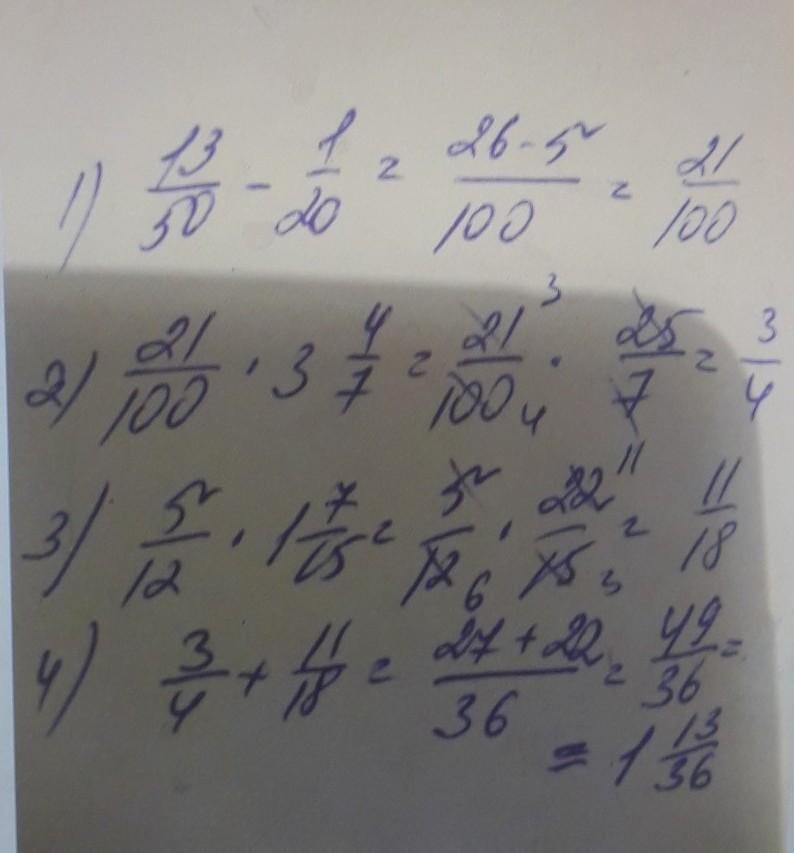 1) 13/50 - 1/20 = 26-5/100 = 21/100
2) 21/100 · 3 4/7 = 21 3/100 4 · 25/7 = 3/4
3) 5/12 · 1 7/15 = 5/12 6 · 22 11/15 3 = 11/18
4) 3/4 + 11/18 = 27+22/36 = 49/36 =
= 1 13/36